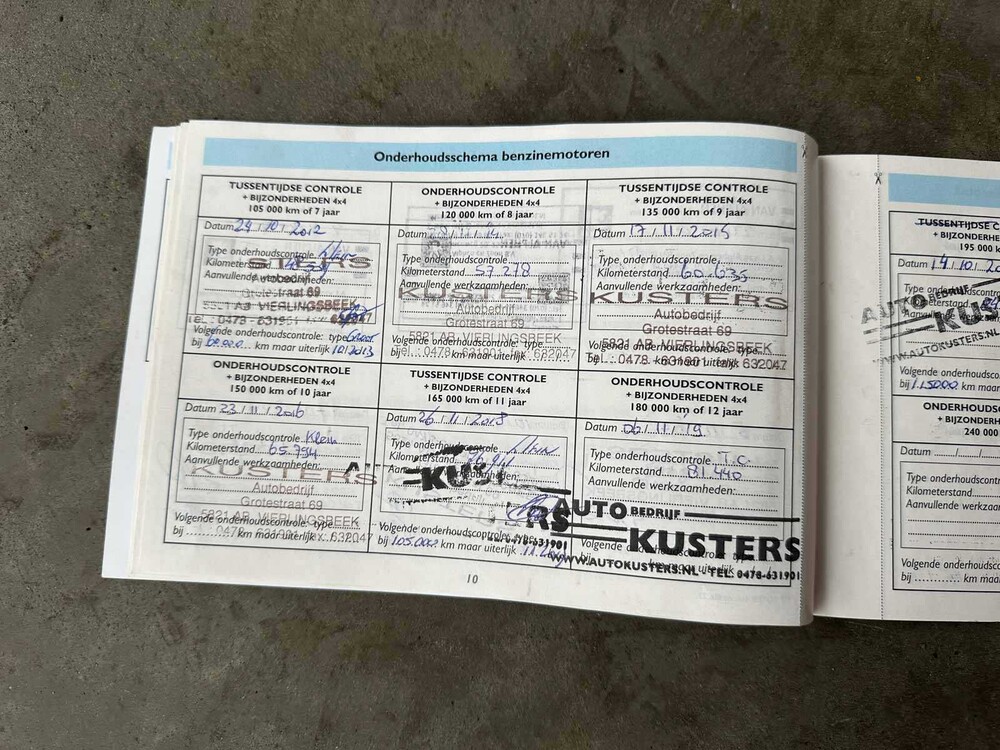 Onderhoudsschema benzinemotoren
TUSSENTIJDSE CONTROLE
+ BIJZONDERHEDEN 4x4
105 000 km of 7 jaar
Datum 29/10/2012
Type onderhoudscontrole: klein
Kilometerstand
Aanvullende werkzaamheden:
Autobedrijf
Grotestraat 69
5821 AB VIERLINGSBEEK
Tel. 0478-631901
Volgende onderhoudscontrole: type Groot
bij 60.000 km maar uiterlijk 10/2013
ONDERHOUDSCONTROLE
+ BIJZONDERHEDEN 4x4
120 000 km of 8 jaar
Datum
Type onderhoudscontrole:
Kilometerstand 57.218
Aanvullende werkzaamheden:
KUSTERS
Autobedrijf
Grotestraat 69
5821 AB VIERLINGSBEEK
Tel.: 0478 - 631901 fax: 632047
TUSSENTIJDSE CONTROLE
+ BIJZONDERHEDEN 4x4
135 000 km of 9 jaar
Datum 17/11/2015
Type onderhoudscontrole:
Kilometerstand 60.635
Aanvullende werkzaamheden:
KUSTERS
Autobedrijf
Grotestraat 69
5821 AB VIERLINGSBEEK
Volgende onderhoudscontrole: type
bij km maar uiterlijk
Tel.: 0478 - 631901 fax: 632047
ONDERHOUDSCONTROLE
+ BIJZONDERHEDEN 4x4
150 000 km of 10 jaar
Datum 23/11/2016
Type onderhoudscontrole: Klein
Kilometerstand 65.794
Aanvullende werkzaamheden:
KUSTERS
Autobedrijf
Grotestraat 69
5821 AB VIERLINGSBEEK
Volgende onderhoudscontrole: type
bij km maar uiterlijk
0478 631901 fax: 632047
TUSSENTIJDSE CONTROLE
+ BIJZONDERHEDEN 4x4
165 000 km of 11 jaar
Datum 26/11/2018
Type onderhoudscontrole klein
Kilometerstand
Volgende onderhoudscontrole: type
bij 105.000 km maar uiterlijk
ONDERHOUDSCONTROLE
+ BIJZONDERHEDEN 4x4
180 000 km of 12 jaar
Datum 06/11/19
Type onderhoudscontrole: T.C.
Kilometerstand 81.440
Aanvullende werkzaamheden:
AUTO BEDRIJF
KUSTERS
Volgende onderhoudscontrole: type
WWW.AUTOKUSTERS.NL - TEL. 0478-631901
10
TUSSENTIJDSE C
+ BIJZONDER
195 000
Datum 14/10/20
AUTO BEDRIJF
KUS
WWW.AUTOKUSTERS.N
Volgende onderhou
bij 115000 km maar
ONDERHOUDSC
+ BIJZONDER
240 000
Datum / /
Type onderhoudscontr
Kilometerstand
Aanvullende werkzaam
Volgende onderhoudsc
bij km maar